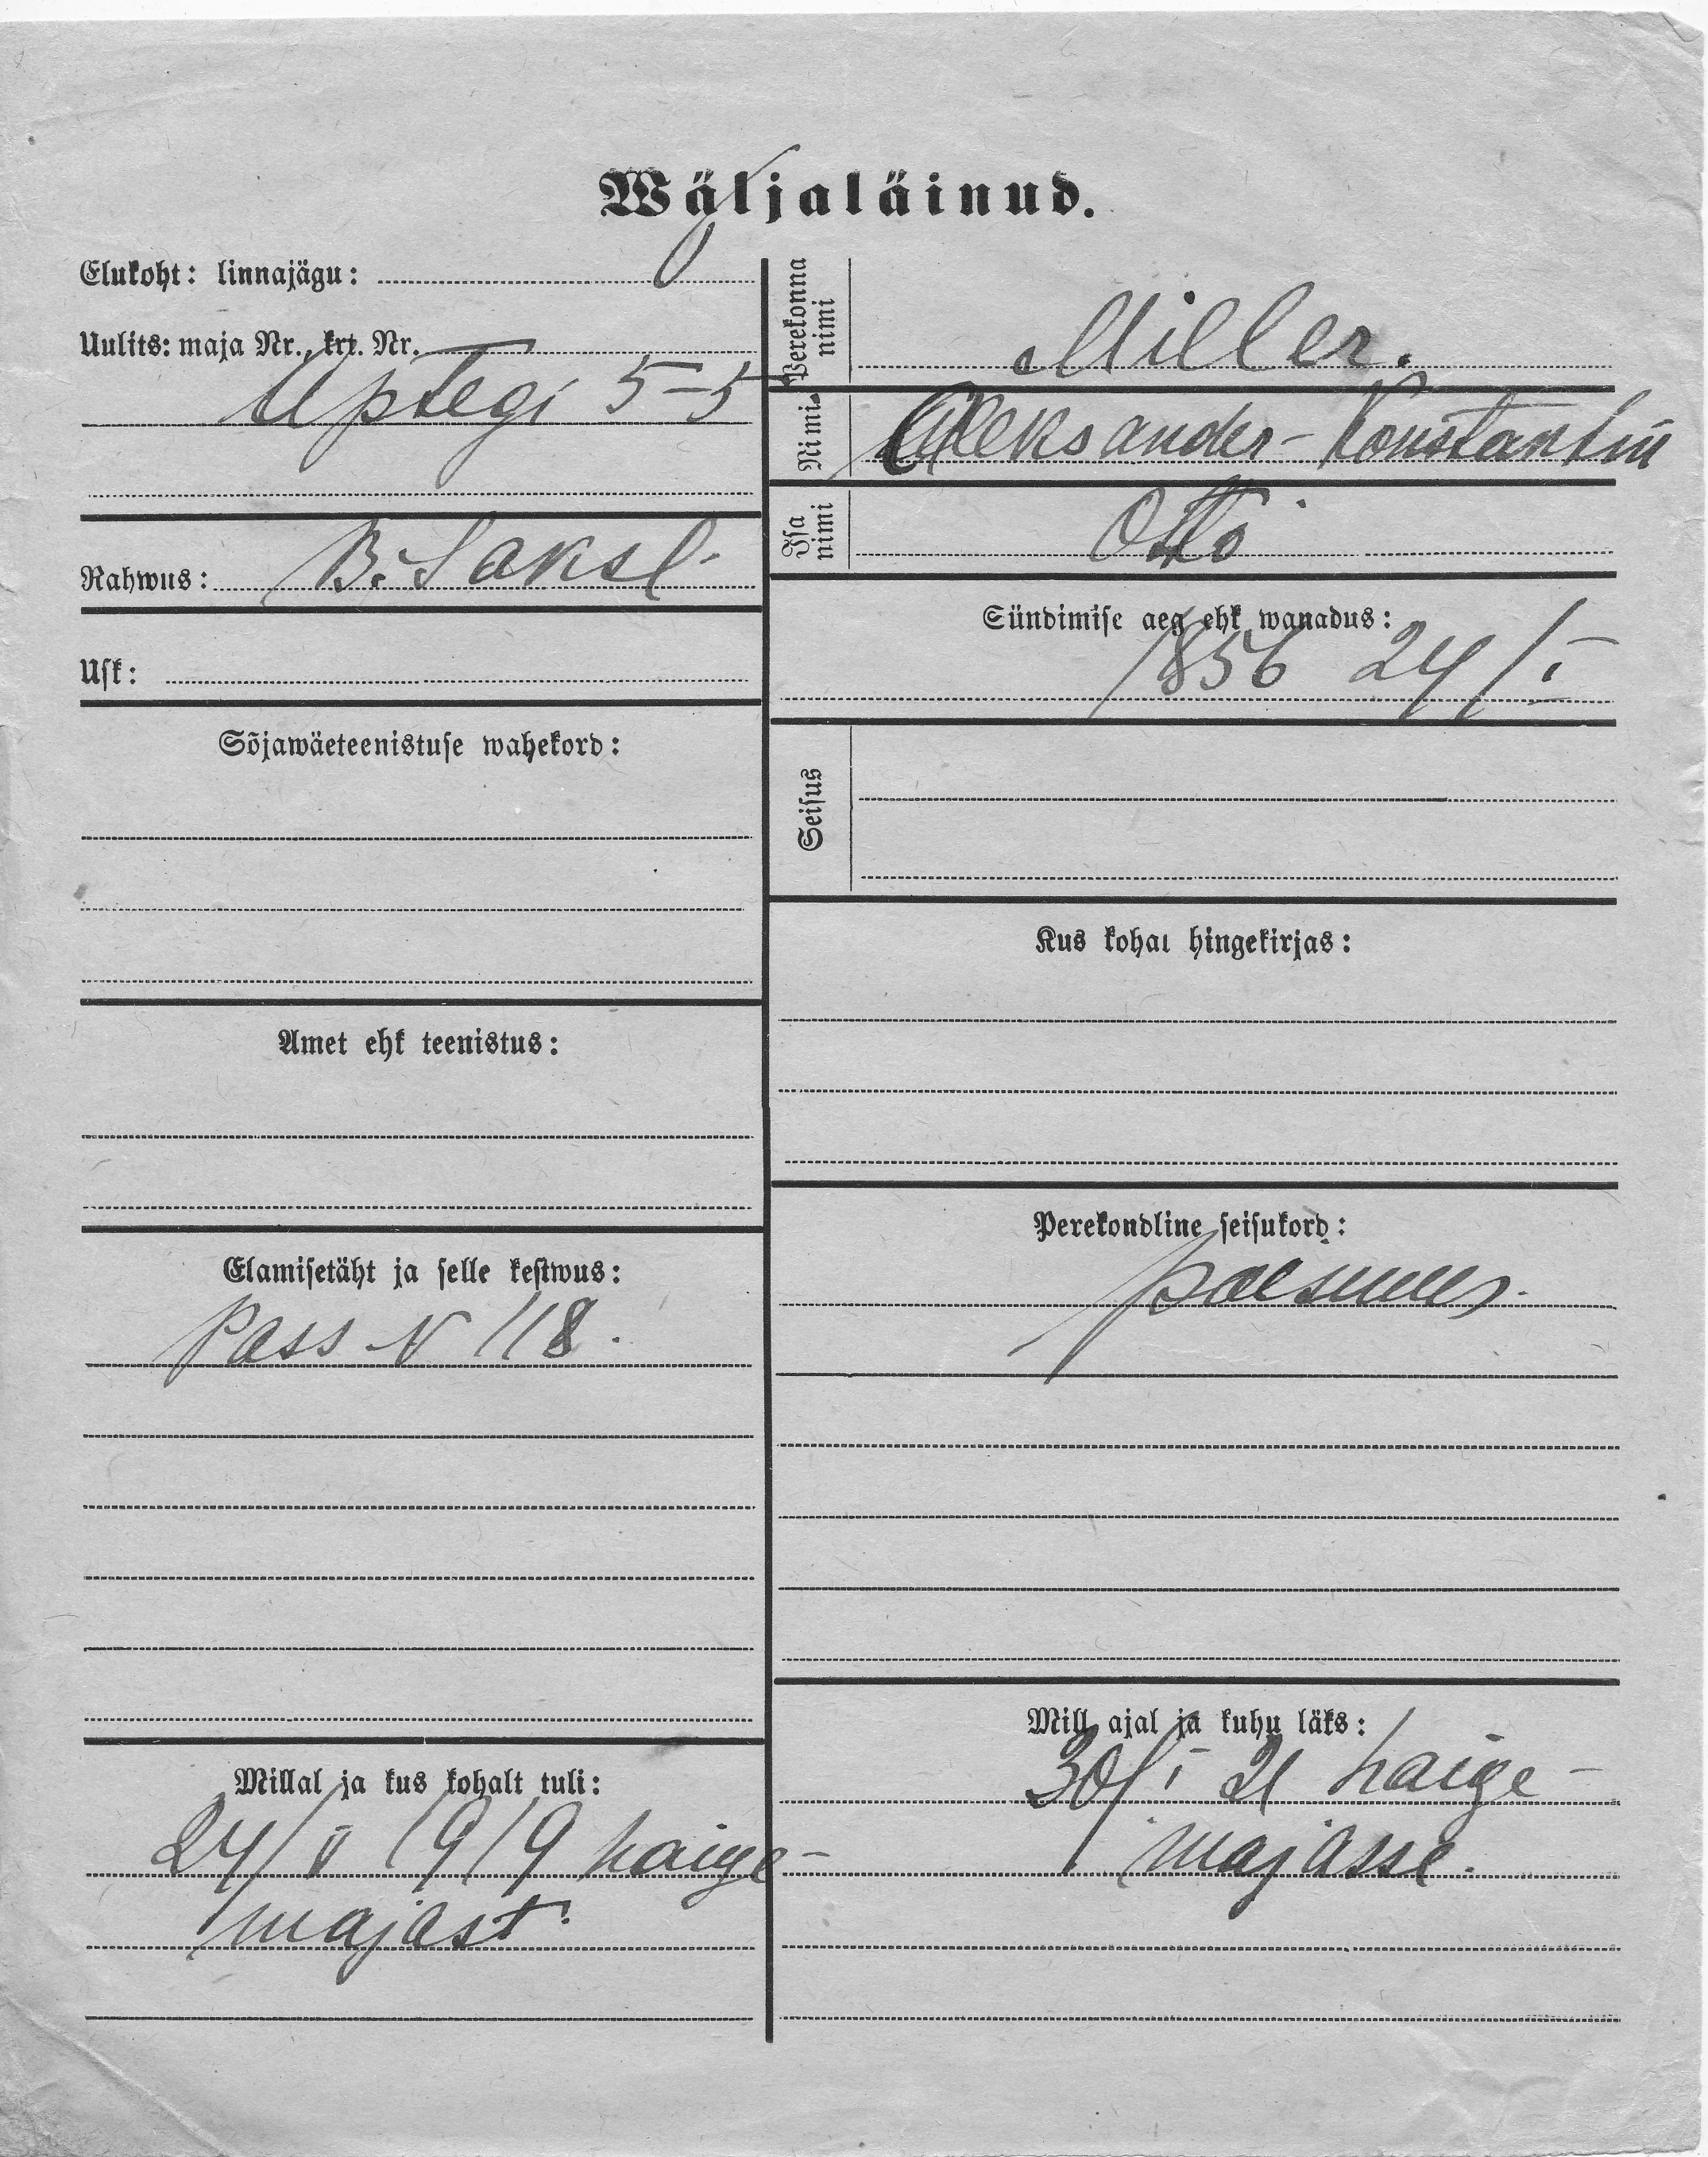 Wäljaläinud.
Elukoht: linnajägu:
Uulits: maja Nr., krt. Nr.
Aptegi 5-5
Rahwus: B. Saksl.
Usk:
Sõjawäeteenistuse wahekord:
Amet ehk teenistus:
Elamisetäht ja selle kestwus:
Pass N 118.
Millal ja kus kohalt tuli:
24/V 1919 haige-
majast.
Perekonna nimi Miller.
Nimi Aleksander-Konstantin
Isa nimi Otto
Sündimise aeg ehk wanadus:
1856 24/I
Seisus
Kus kohal hingekirjas:
Perekondline seisukord:
poismees.
Mill ajal ja kuhu läks:
30/I 21 haige-
majasse.